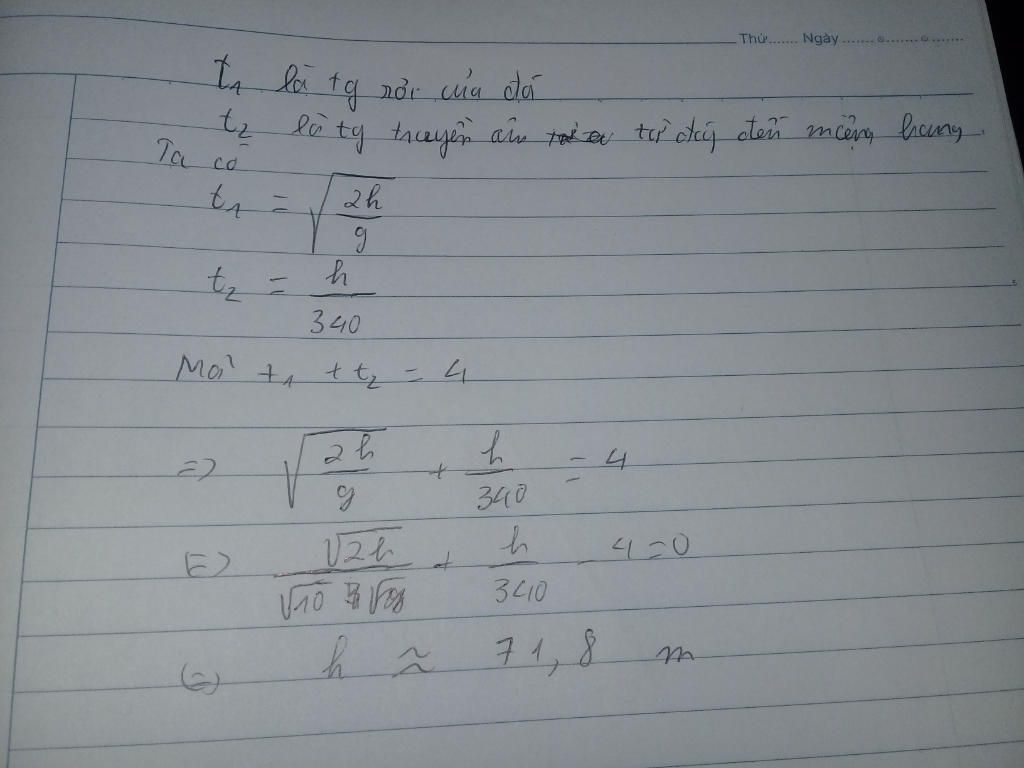 Thứ....... Ngày .......o.......o.......
t₁ là tg rơi của đá
t₂ là tg truyền âm từ đáy đến miệng hang.
Ta có
t₁ = √(2h/g)
t₂ = h/340
Mà t₁ + t₂ = 4
=> √(2h/g) + h/340 = 4
(=) √2h/√10 + h/340 - 4 = 0
(=) h ≈ 71,8 m